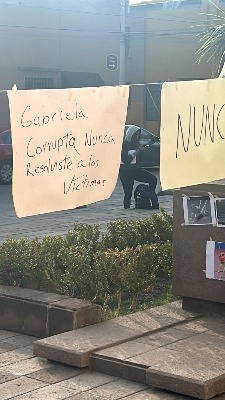 Gabriela
Corrupta Nunca
Resolviste a las
Victimas
NUN